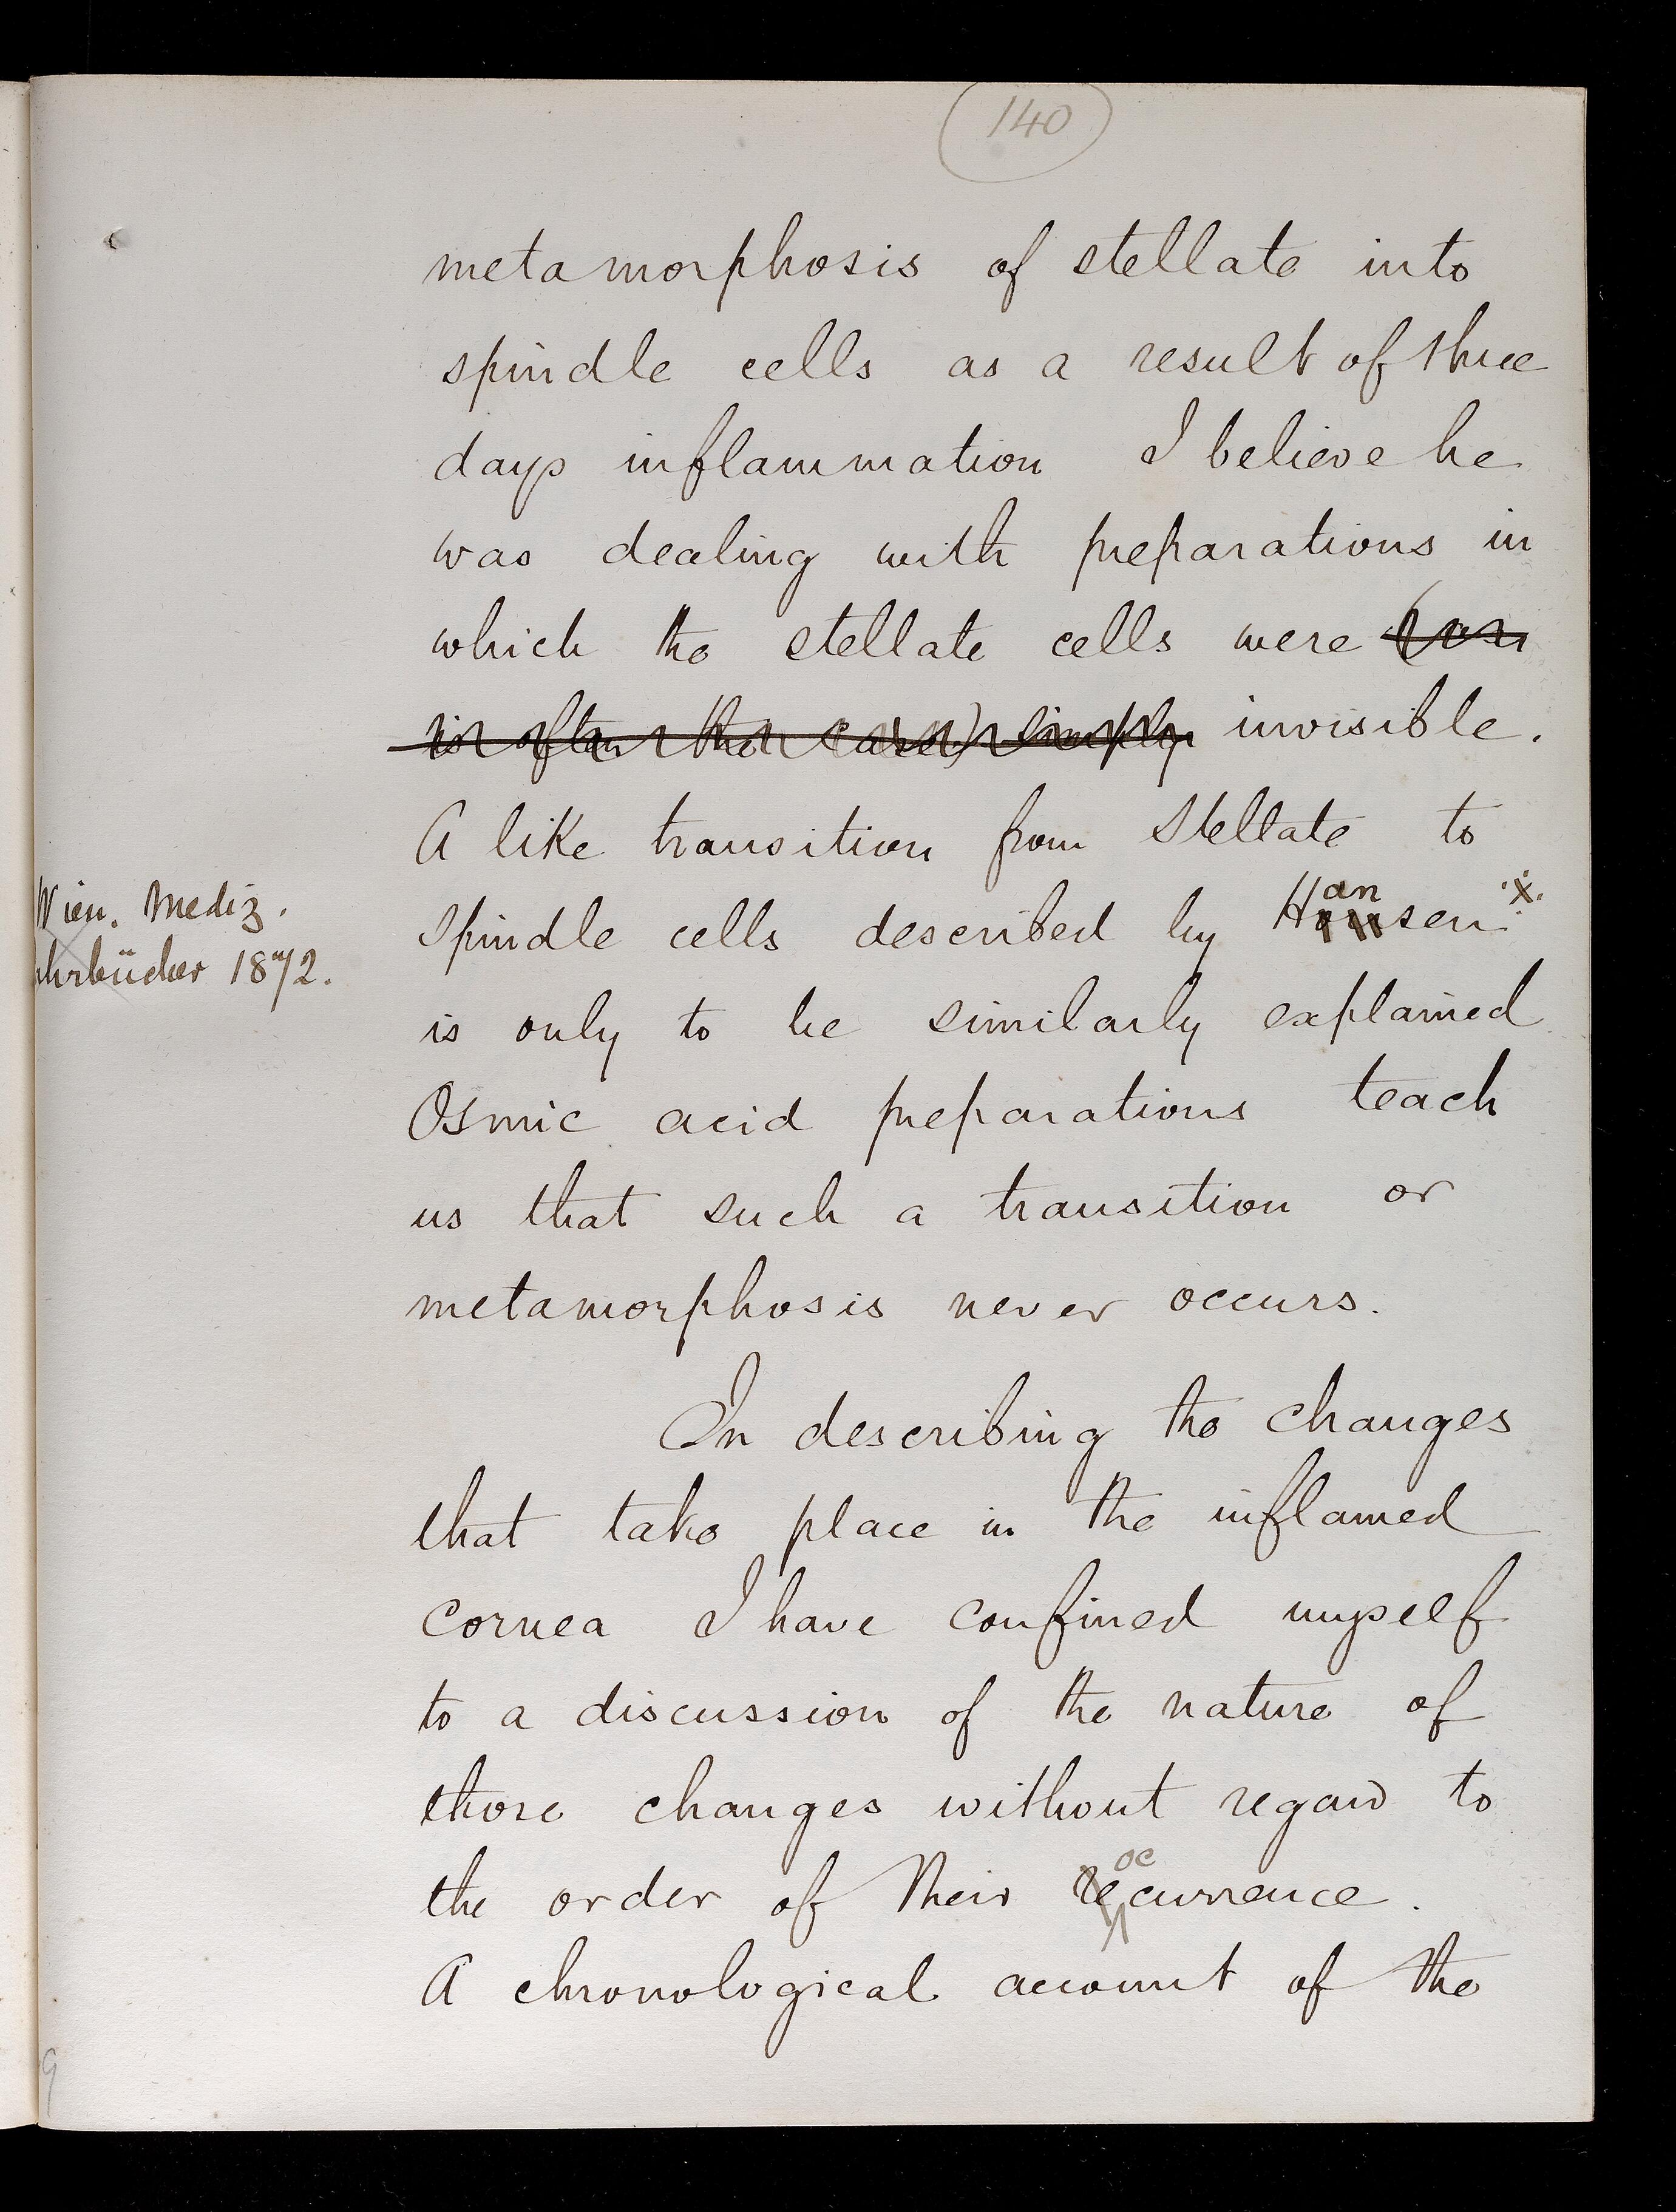 140
metamorphosis of stellate into
spindle cells as a result of three
days inflammation I believe he
was dealing with preparations in
which the stellate cells were (as
is often the case) simply invisible.
A like transition from Stellate to
Wien. Mediz.
Spindle cells described by Hansen x
ahrbücher 1872.
is only to be similarly explained
Osmic acid preparations teach
us that such a transition or
metamorphosis never occurs.
In describing the changes
that take place in the inflamed
cornea I have confined myself
to a discussion of the nature of
those changes without regard to
the order of their occurrence.
A chronological account of the
9